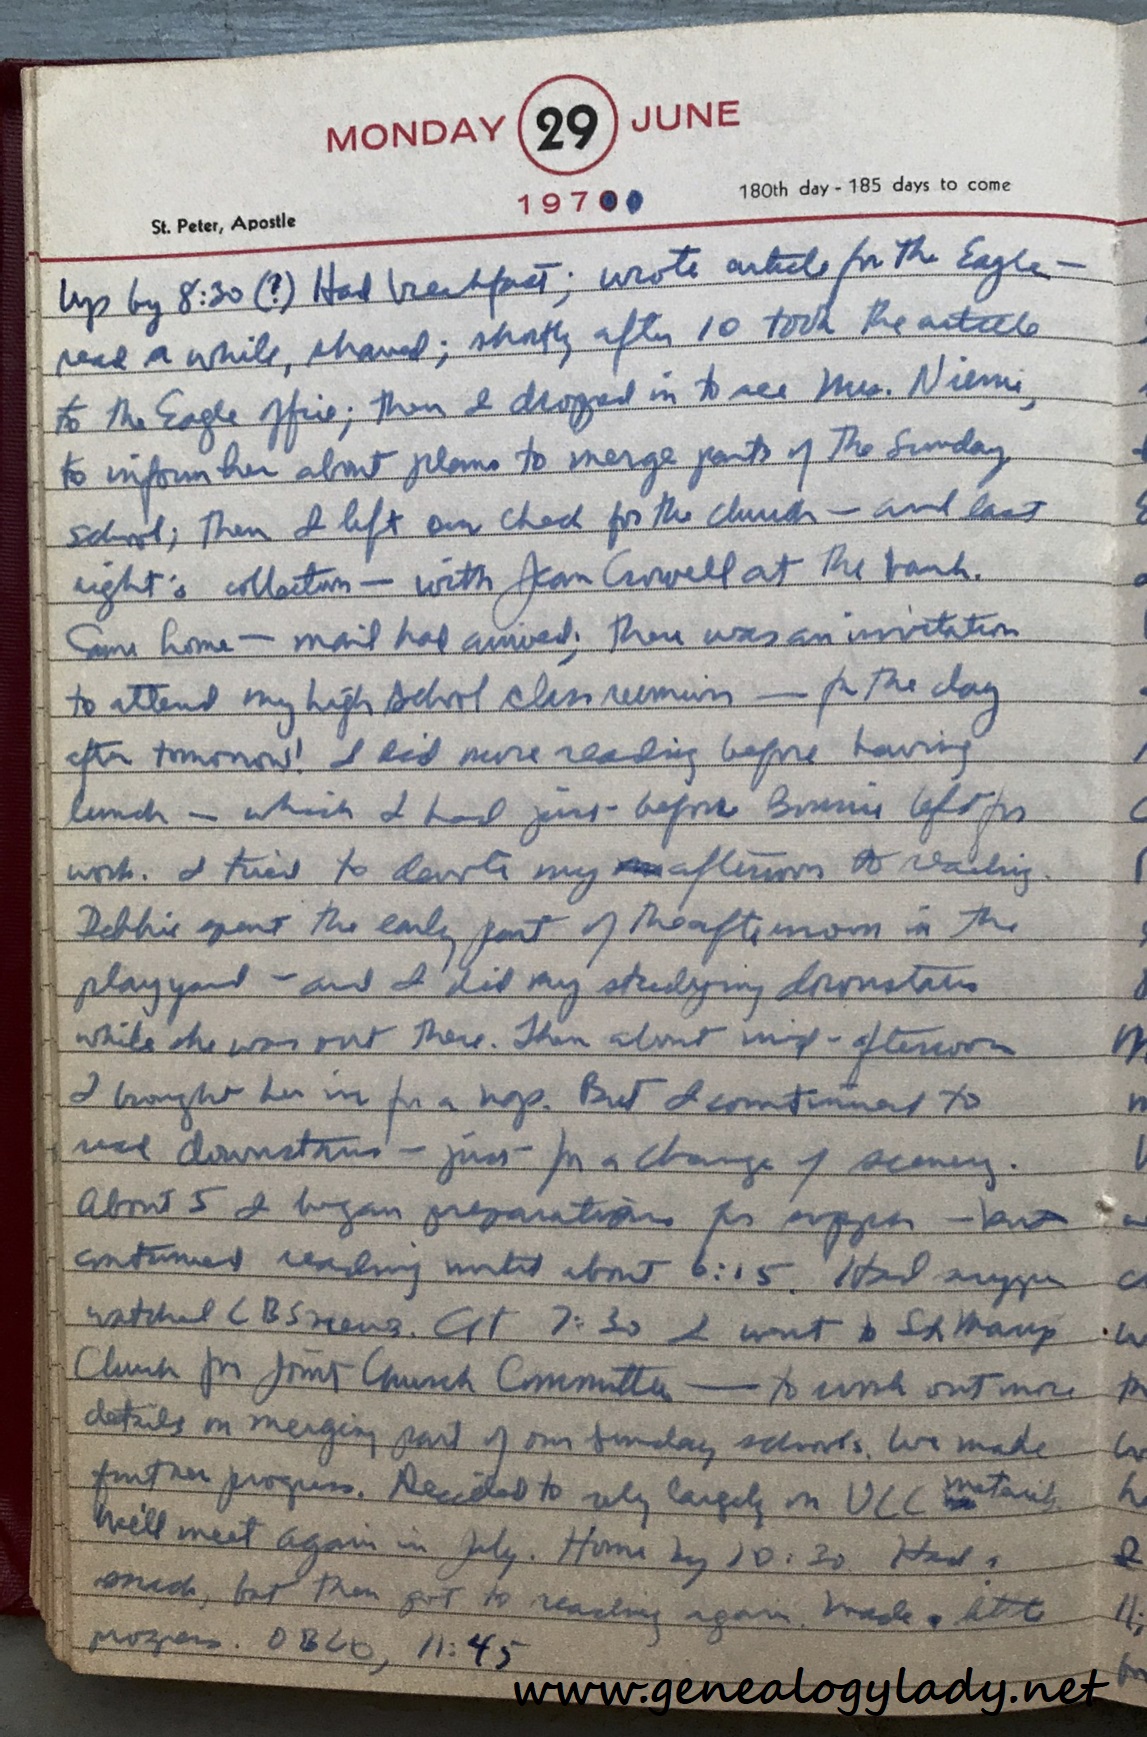 MONDAY 29 JUNE
1970
180th day - 185 days to come
St. Peter, Apostle
Up by 8:30 (?) Had breakfast; wrote article for the Eagle —
read a while, shaved; shortly after 10 took the article
to the Eagle office; then I dropped in to see Mrs. Niemi,
to inform her about plans to merge parts of the Sunday
school; then I left our check for the church — and last
night's collection — with Jean Crowell at the bank.
Came home — mail had arrived; there was an invitation
to attend my high school class reunion — for the day
after tomorrow! I did more reading before having
lunch — which I had just before Bonnie left for
work. I tried to devote my afternoon to reading.
Debbie spent the early part of the afternoon in the
play yard — and I did my studying downstairs
while she was out there. Then about mid-afternoon
I brought her in for a nap. But I continued to
read downstairs — just for a change of scenery.
About 5 I began preparations for supper — but
continued reading until about 6:15. Had supper
watched CBS news. At 7:30 I went to St. Mary's
Church for Joint Church Committee — to work out more
details on merging part of our Sunday schools. We made
further progress. Decided to rely largely on UCC materials
We'll meet again in July. Home by 10:30. Had a
snack, but then got to reading again. Made a little
progress. 11:45
www.genealogylady.net